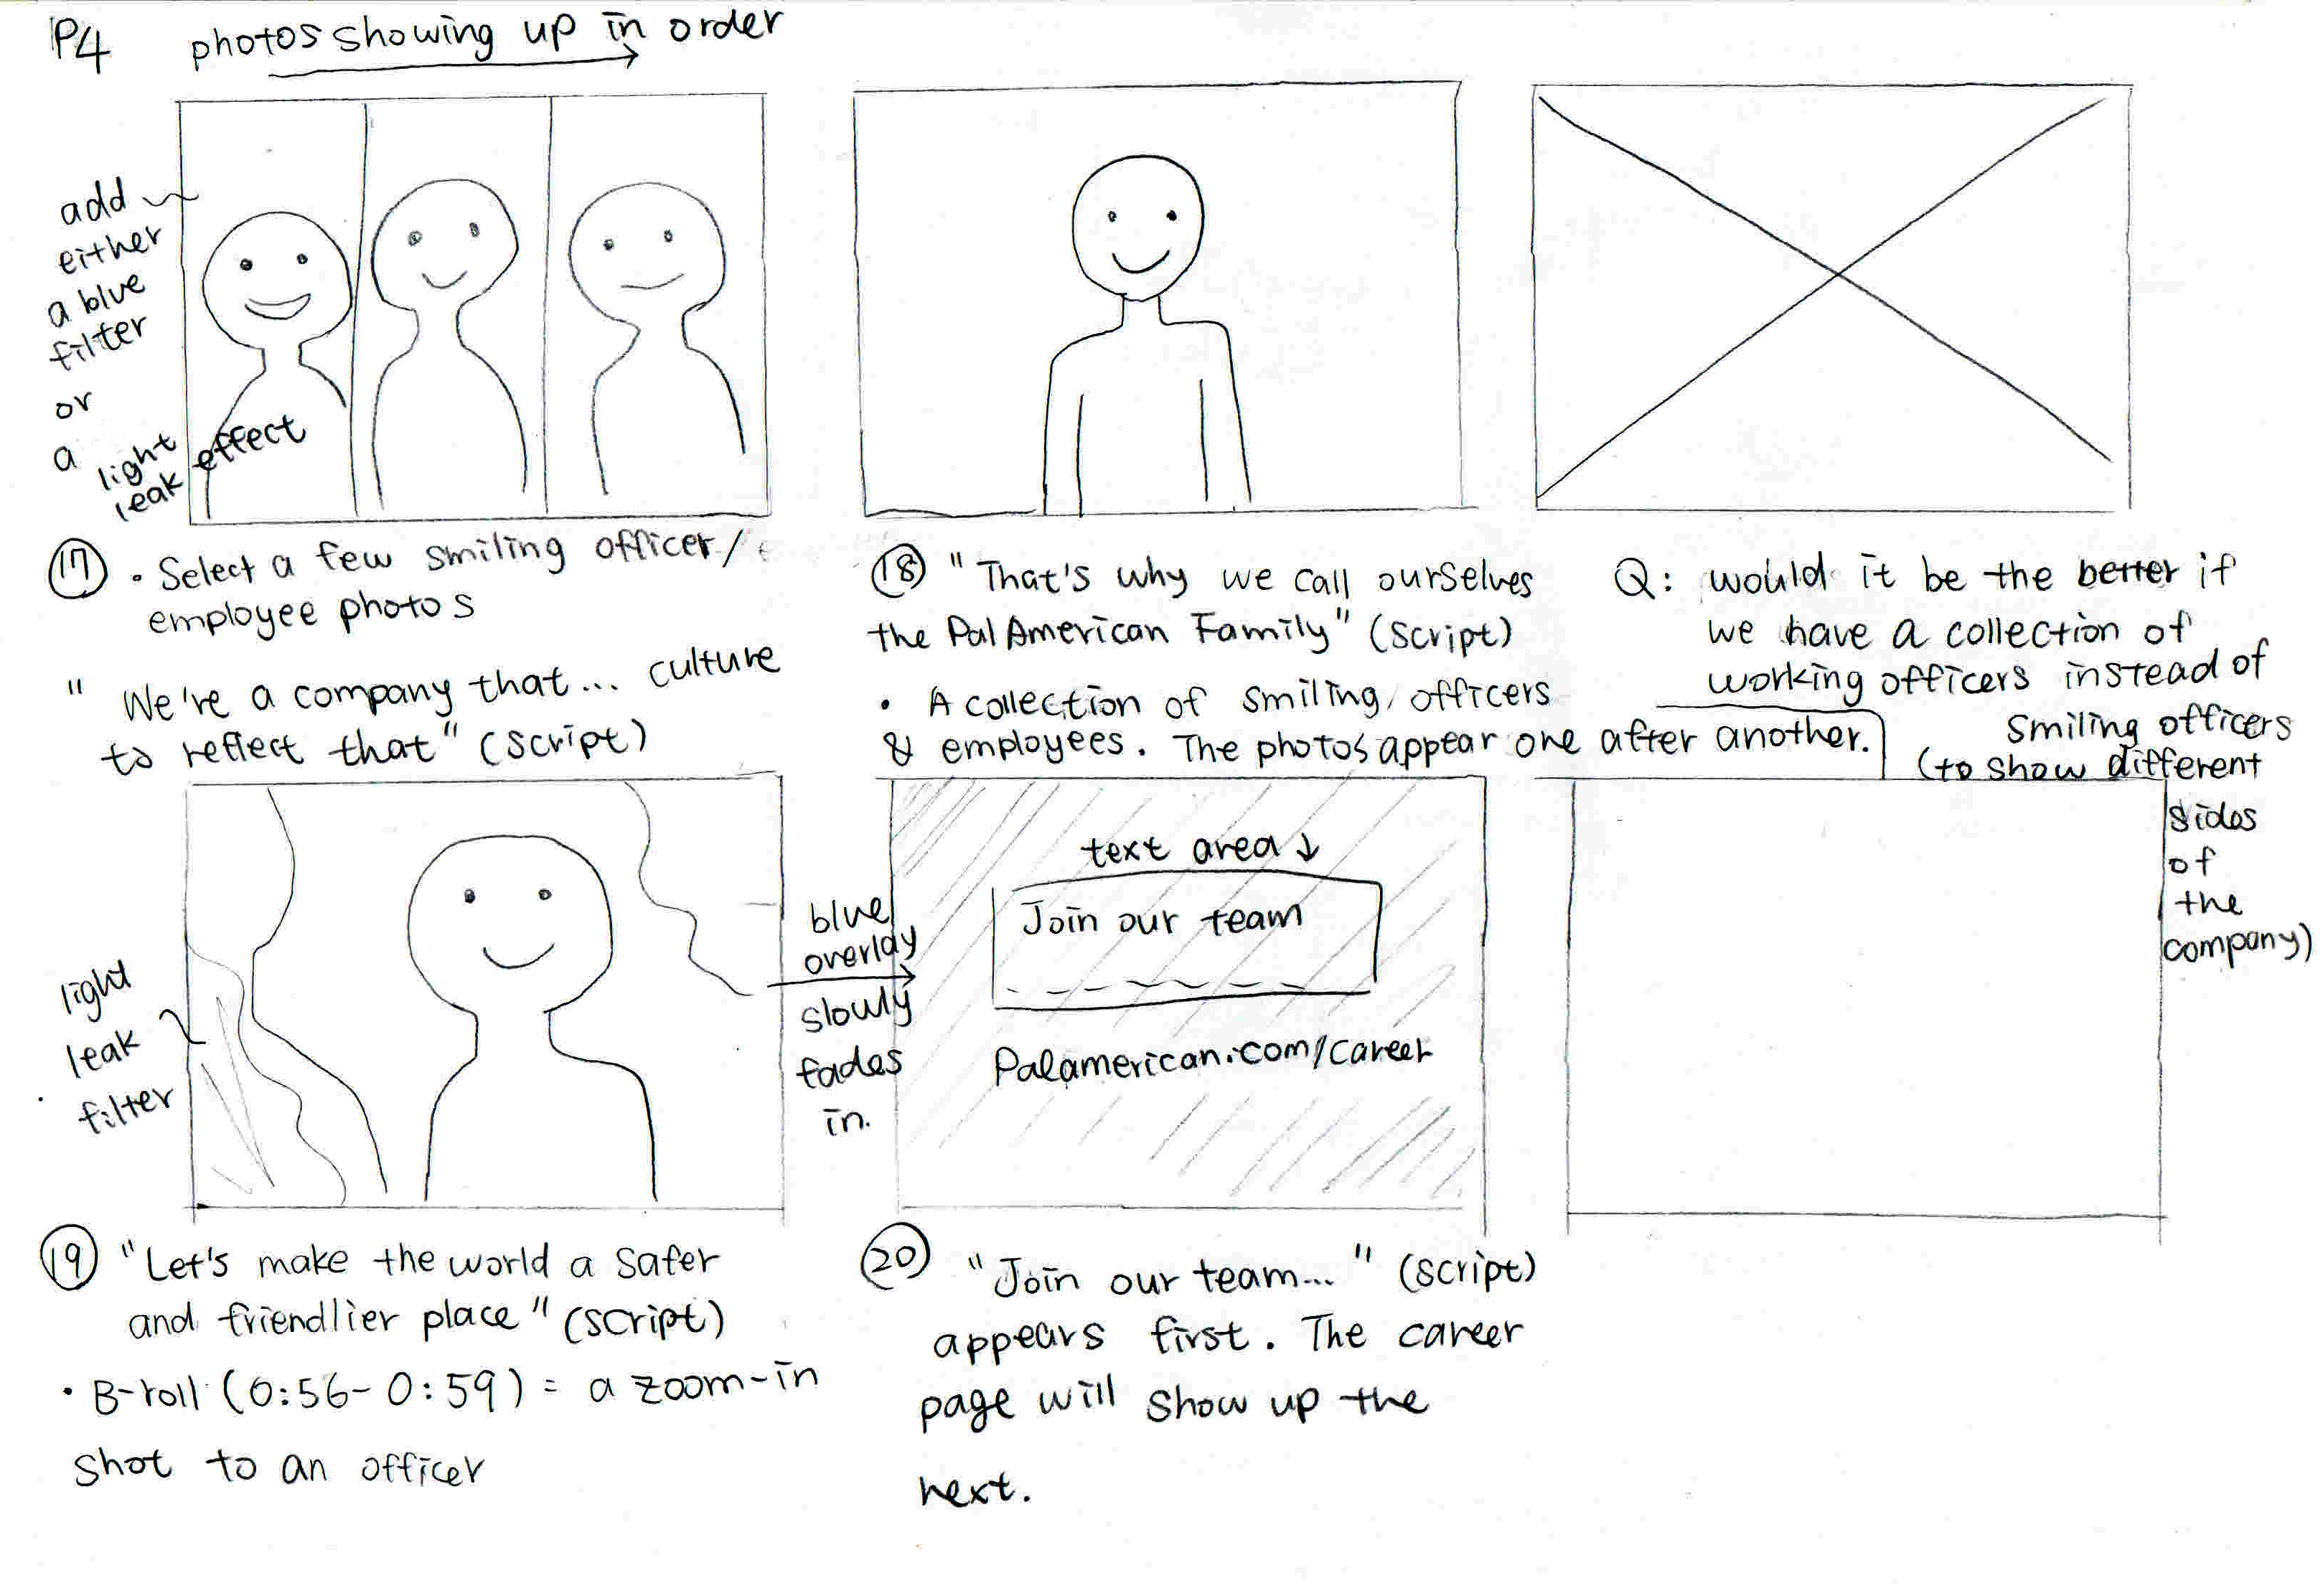 P4
photos showing up in order
add
either
a blue
filter
or
a light
leak effect
17 · Select a few smiling officer/
employee photos
" We're a company that... culture
to reflect that" (script)
18 "That's why we call ourselves
the PalAmerican Family" (script)
· A collection of smiling officers
& employees. The photos appear one after another.
Q: would it be the better if
we have a collection of
working officers instead of
smiling officers
(to show different
sides
of
the
company)
light
leak
filter
blue
overlay
slowly
fades
in.
text area ↓
Join our team
Palamerican.com/career
19 "Let's make the world a safer
and friendlier place" (script)
· B-roll (0:56-0:59) = a zoom-in
shot to an officer
20 "Join our team..." (script)
appears first. The career
page will show up the
next.